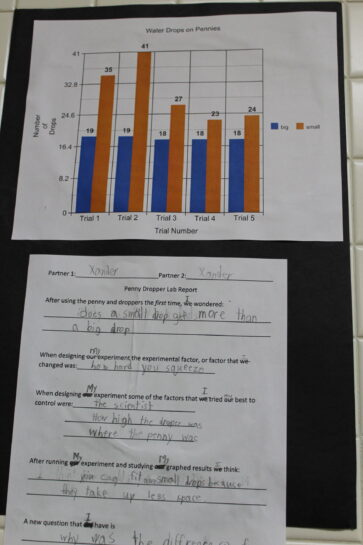 Water Drops on Pennies
41
32.8
24.6
16.4
8.2
0
Number of Drops
19 35
19 41
18 27
18 23
18 24
Trial 1 Trial 2 Trial 3 Trial 4 Trial 5
Trial Number
big small
Partner 1: Xander Partner 2: Xander
Penny Dropper Lab Report
After using the penny and droppers the first time, we I wondered:
does a small drop get more than
a big drop
When designing our My experiment the experimental factor, or factor that we I
changed was: how hard you squeeze
When designing our My experiment some of the factors that we I tried our best to
control were: the scientist
How high the droper was
where the penny was
After running our My experiment and studying our My graphed results we I think:
you fit small drops because
they take up less space
A new question that we I have is
why was the difference